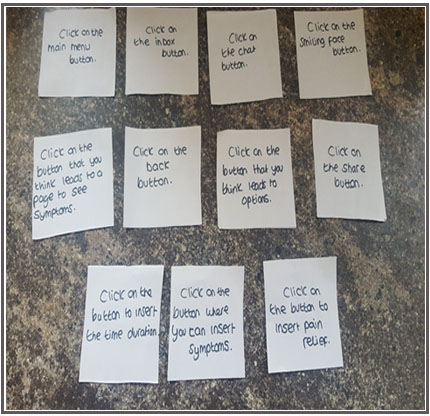 Click on the
main menu
button.
Click on
the inbox
button.
Click on
the chat
button.
Click on the
Smiling face
button.
Click on the
button that you
think leads to a
page to see
symptoms.
Click on the
back
button.
Click on the
button that you
think leads to
options.
Click on
the share
button.
Click on the
button to insert
the time duration.
Click on the
button where
you can insert
symptoms.
Click on
the button to
insert pain
relief.